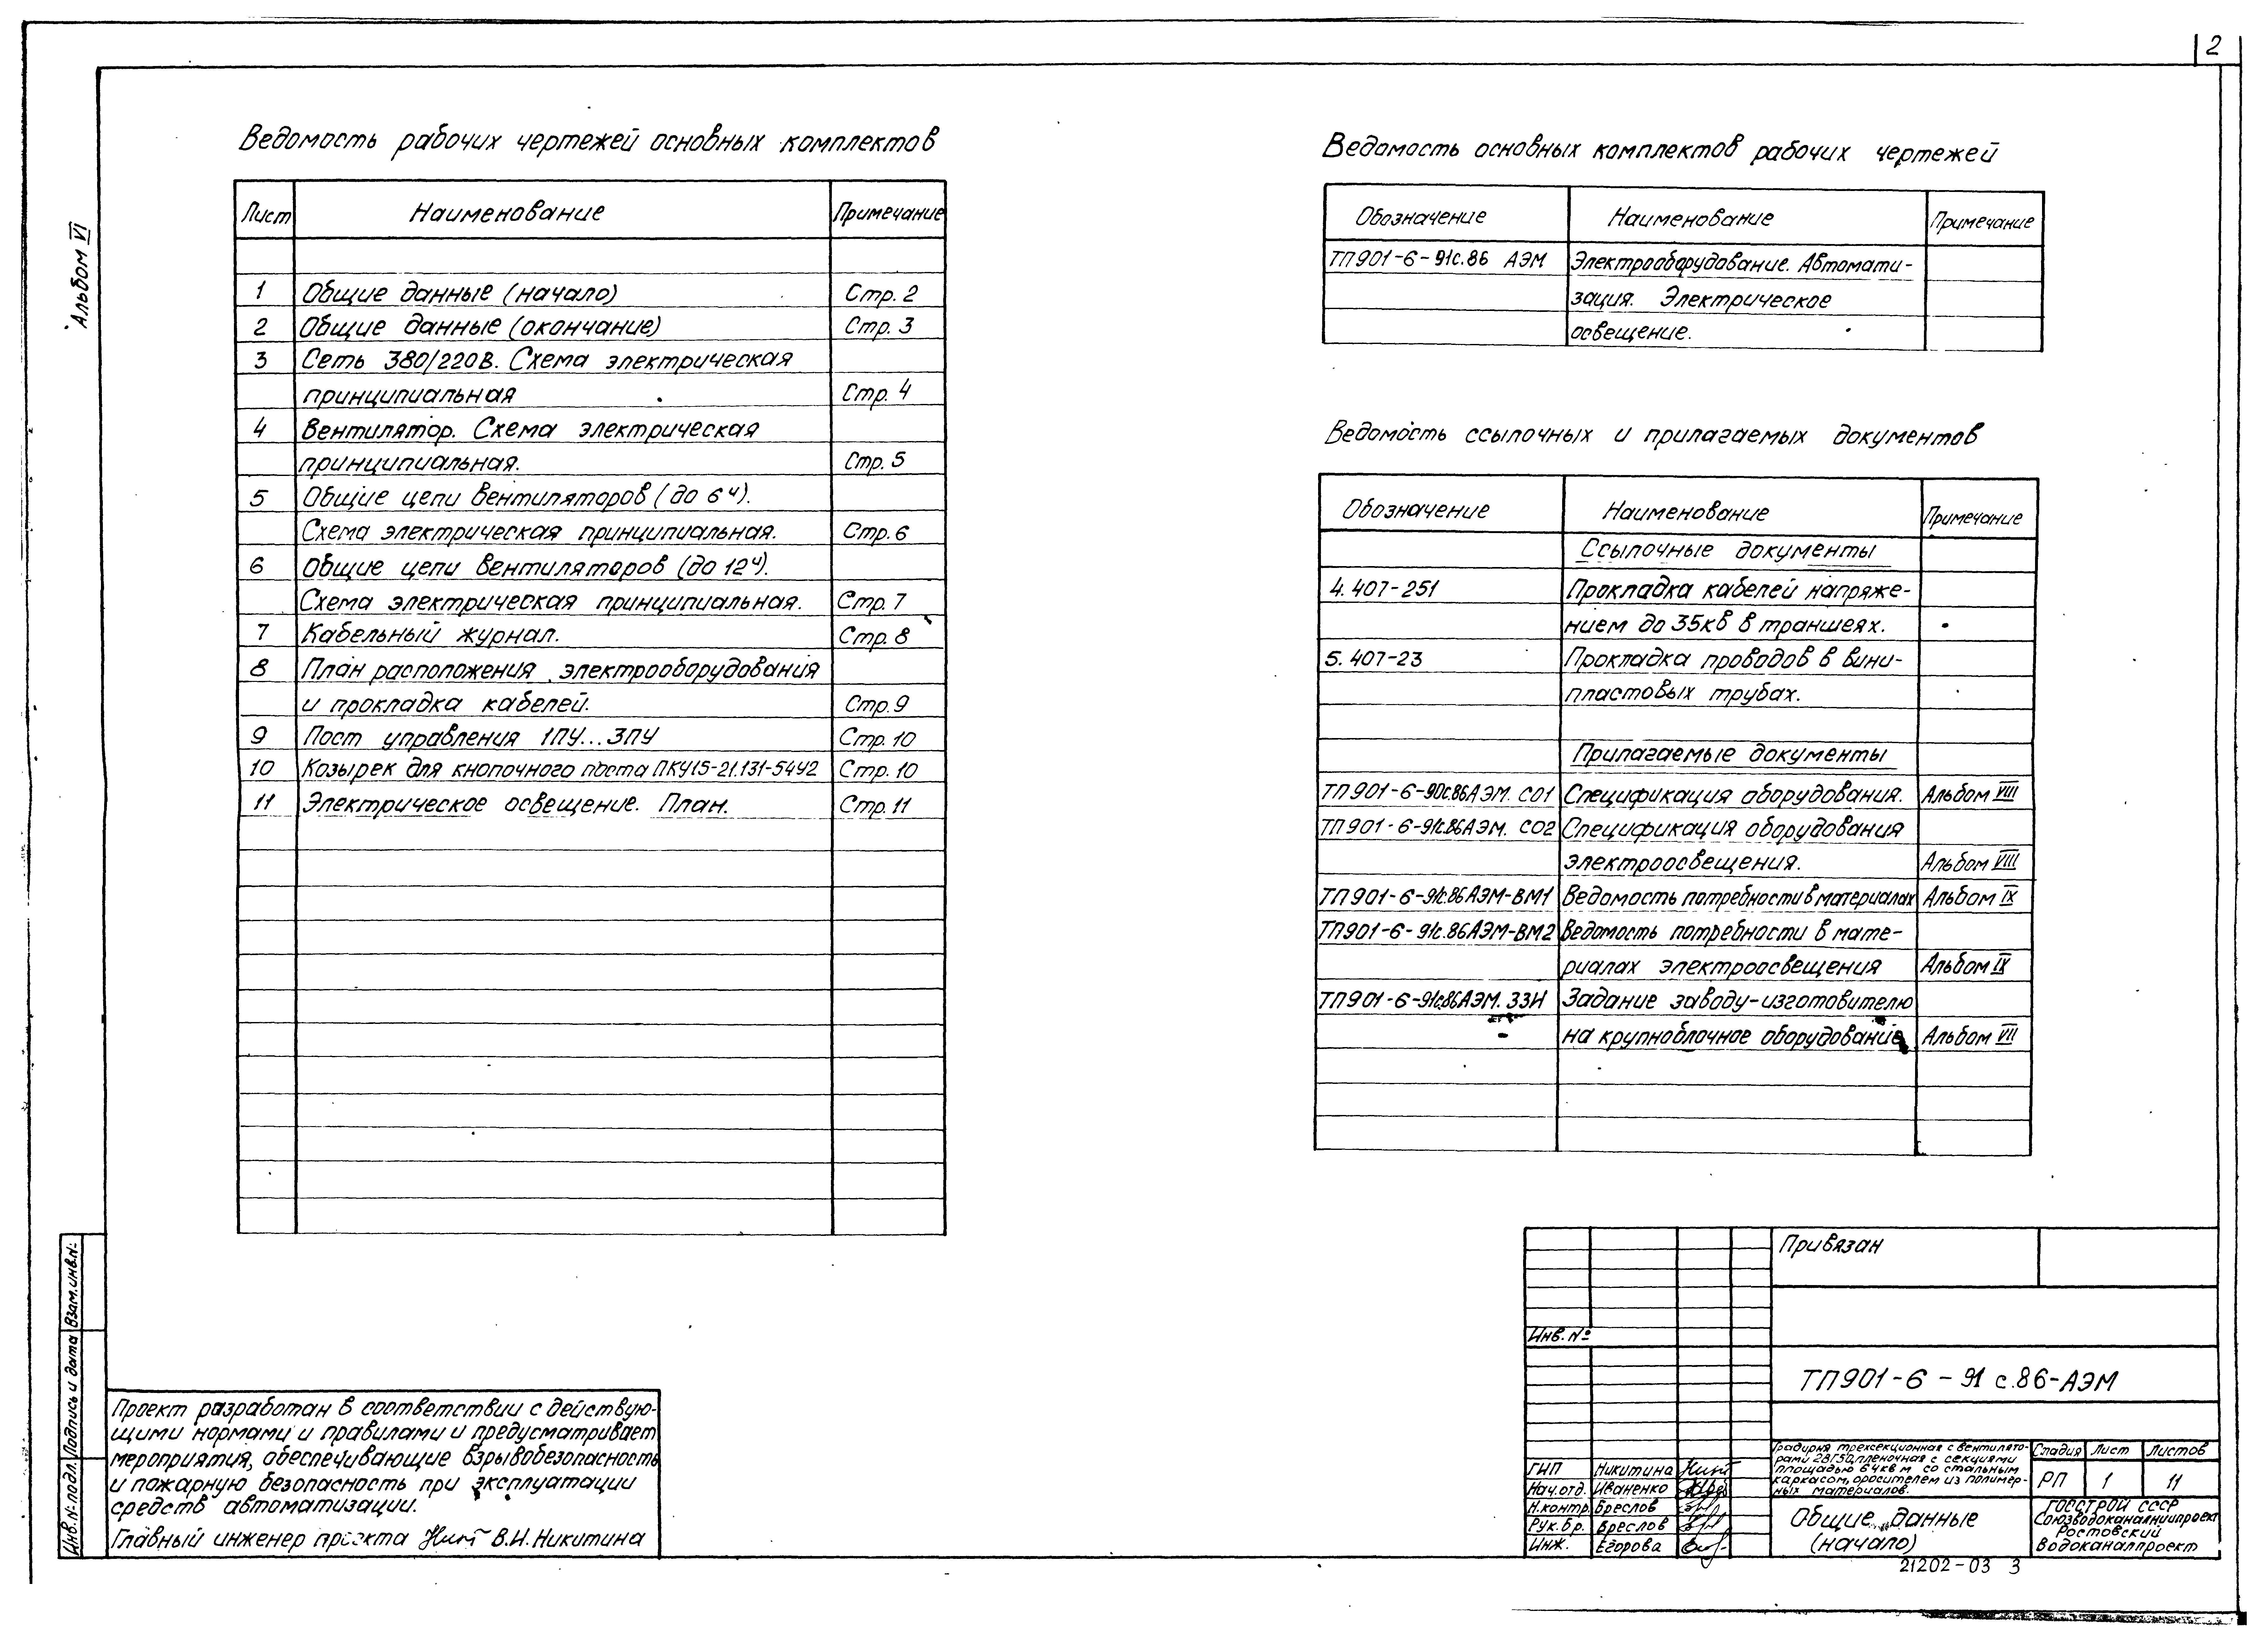 2
Альбом VI
Ведомость рабочих чертежей основных комплектов
Лист Наименование Примечание
1 Общие данные (начало) Стр. 2
2 Общие данные (окончание) Стр. 3
3 Сеть 380/220В. Схема электрическая
принципиальная Стр. 4
4 Вентилятор. Схема электрическая
принципиальная. Стр. 5
5 Общие цепи вентиляторов (до 6ч).
Схема электрическая принципиальная. Стр. 6
6 Общие цепи вентиляторов (до 12ч).
Схема электрическая принципиальная. Стр. 7
7 Кабельный журнал. Стр. 8
8 План расположения электрооборудования
и прокладка кабелей. Стр. 9
9 Пост управления 1ПУ...3ПУ Стр. 10
10 Козырек для кнопочного поста ПКУ15-21.131-54У2 Стр. 10
11 Электрическое освещение. План. Стр. 11
Ведомость основных комплектов рабочих чертежей
Обозначение Наименование Примечание
ТП901-6-91с.86 АЭМ Электрооборудование. Автомати-
зация. Электрическое
освещение.
Ведомость ссылочных и прилагаемых документов
Обозначение Наименование Примечание
Ссылочные документы
4.407-251 Прокладка кабелей напряже-
нием до 35кВ в траншеях.
5.407-23 Прокладка проводов в вини-
пластовых трубах.
Прилагаемые документы
ТП901-6-90с.86АЭМ. СО1 Спецификация оборудования. Альбом VIII
ТП901-6-91с.86АЭМ. СО2 Спецификация оборудования
электроосвещения. Альбом VIII
ТП901-6-91с.86АЭМ-ВМ1 Ведомость потребности в материалах Альбом IX
ТП901-6-91с.86АЭМ-ВМ2 Ведомость потребности в мате-
риалах электроосвещения Альбом IX
ТП901-6-91с.86АЭМ. ЗЗИ Задание заводу-изготовителю
на крупноблочное оборудование Альбом VII
Проект разработан в соответствии с действую-
щими нормами и правилами и предусматривает
мероприятия, обеспечивающие взрывобезопасность
и пожарную безопасность при эксплуатации
средств автоматизации.
Главный инженер проекта В.И.Никитина
Инв.№ подл. Подпись и дата Взам.инв.№
Привязан
Инв. №
ТП901-6-91с.86-АЭМ
Градирня трехсекционная с вентилято-
рами 2ВГ50, пленочная с секциями
площадью 64кв м со стальным
каркасом, оросителем из полимер-
ных материалов.
Стадия Лист Листов
РП 1 11
ГИП Никитина
Нач.отд. Иваненко
Н.контр. Бреслов
Рук.бр. Бреслов
Инж. Егорова
Общие данные
(начало)
ГОССТРОЙ СССР
Союзводоканалниипроект
Ростовский
Водоканалпроект
21202-03 3